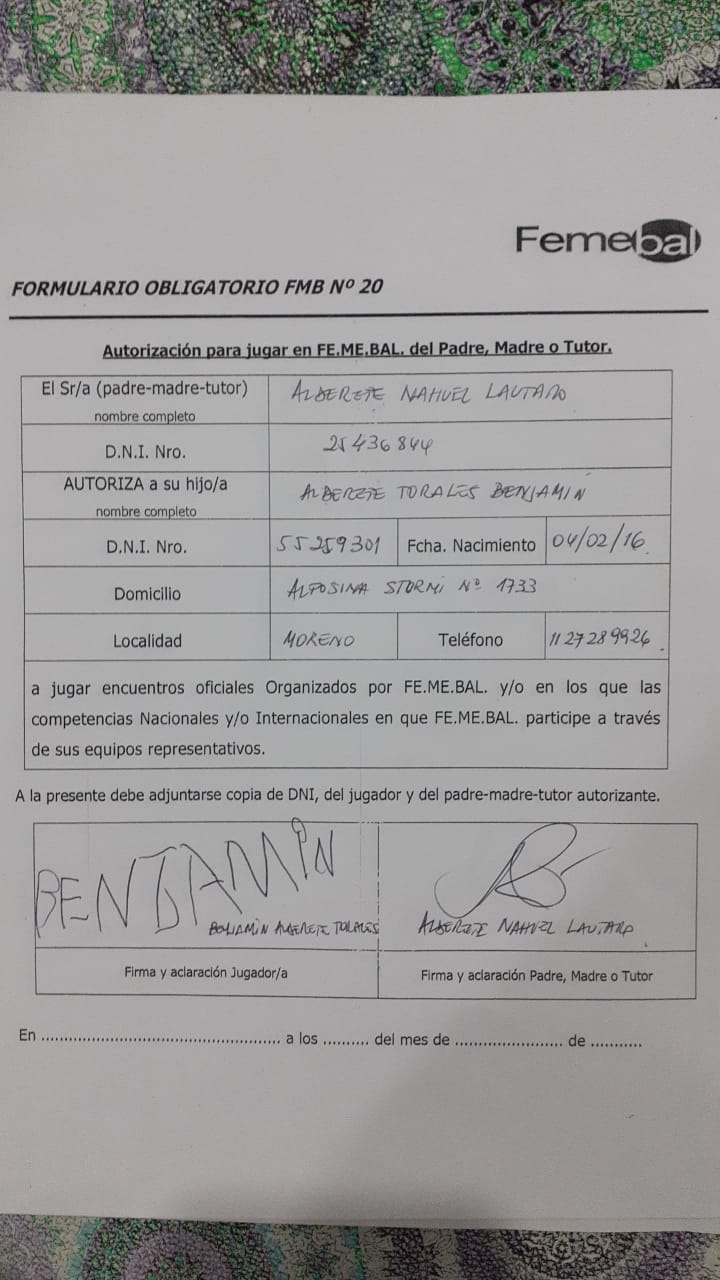 Femebal
FORMULARIO OBLIGATORIO FMB Nº 20
Autorización para jugar en FE.ME.BAL. del Padre, Madre o Tutor.
El Sr/a (padre-madre-tutor)
nombre completo
ALDERETE NAHUEL LAUTARO
D.N.I. Nro.
25436844
AUTORIZA a su hijo/a
nombre completo
ALDERETE TORALES BENJAMÍN
D.N.I. Nro.
55259301
Fcha. Nacimiento
04/02/16
Domicilio
ALFOSINA STORNI Nº 1733
Localidad
MORENO
Teléfono
1127289926
a jugar encuentros oficiales Organizados por FE.ME.BAL. y/o en los que las
competencias Nacionales y/o Internacionales en que FE.ME.BAL. participe a través
de sus equipos representativos.
A la presente debe adjuntarse copia de DNI, del jugador y del padre-madre-tutor autorizante.
BENJAMIN
BENJAMÍN ALDERETE TORALES
ALDERETE NAHUEL LAUTARO
Firma y aclaración Jugador/a
Firma y aclaración Padre, Madre o Tutor
En .................................................... a los .......... del mes de ....................... de ...........